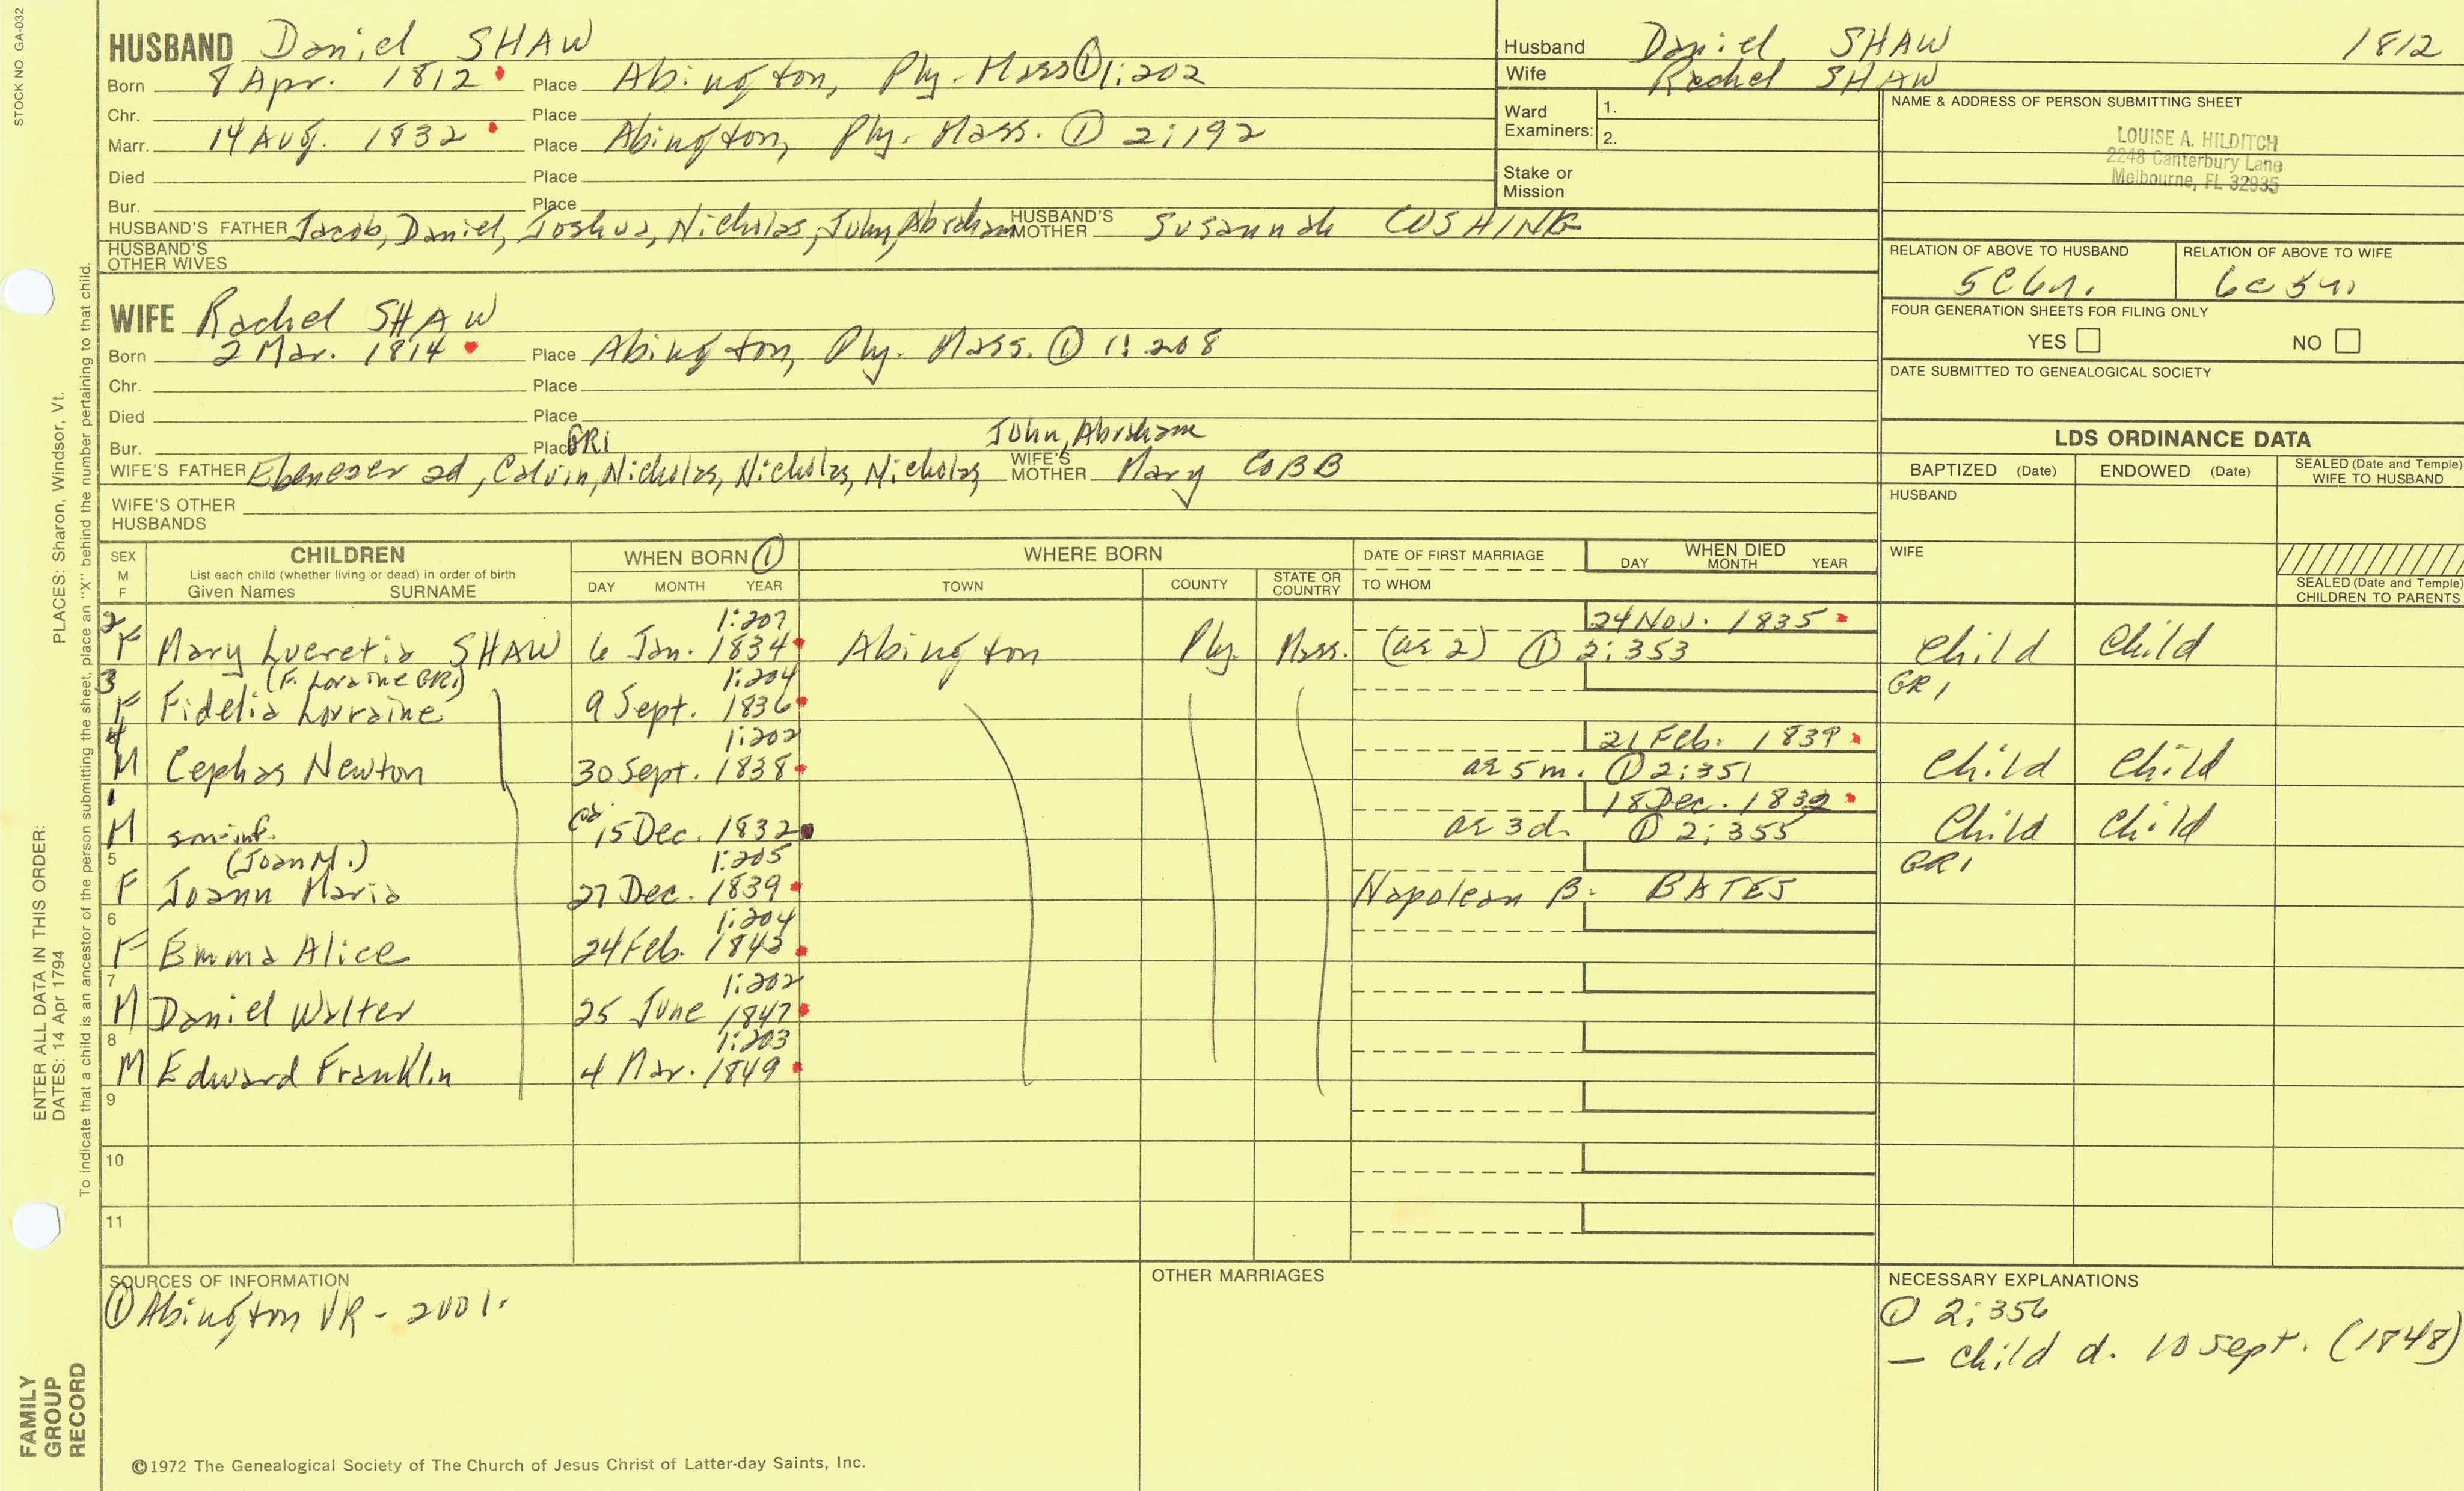 STOCK NO. GA-032
HUSBAND Daniel SHAW
Born 8 Apr. 1812 Place Abington, Ply. Mass ① 1:202
Chr. Place
Marr. 14 Aug. 1832 Place Abington, Ply. Mass. ① 2:192
Died Place
Bur. Place
HUSBAND'S FATHER Jacob, Daniel, Joshua, Nicholas, John, Abraham HUSBAND'S MOTHER Susannah CUSHING
HUSBAND'S OTHER WIVES
Husband Daniel SHAW 1812
Wife Rachel SHAW
Ward Examiners: 1.
2.
Stake or Mission
NAME & ADDRESS OF PERSON SUBMITTING SHEET
LOUISE A. HILDITCH
2248 Canterbury Lane
Melbourne, FL 32935
RELATION OF ABOVE TO HUSBAND RELATION OF ABOVE TO WIFE
5C6r. 6c5r
FOUR GENERATION SHEETS FOR FILING ONLY
YES NO
DATE SUBMITTED TO GENEALOGICAL SOCIETY
WIFE Rachel SHAW
Born 2 Mar. 1814 Place Abington, Ply. Mass. ① 1:208
Chr. Place
Died Place
Bur. Place GR1
John, Abraham
WIFE'S FATHER Ebenezer 2d, Calvin, Nicholas, Nicholas, Nicholas, WIFE'S MOTHER Mary COBB
WIFE'S OTHER HUSBANDS
LDS ORDINANCE DATA
BAPTIZED (Date) ENDOWED (Date) SEALED (Date and Temple) WIFE TO HUSBAND
HUSBAND
WIFE
SEALED (Date and Temple) CHILDREN TO PARENTS
SEX M F CHILDREN WHEN BORN ① WHERE BORN DATE OF FIRST MARRIAGE WHEN DIED
List each child (whether living or dead) in order of birth
Given Names SURNAME DAY MONTH YEAR TOWN COUNTY STATE OR COUNTRY TO WHOM DAY MONTH YEAR
2 1:207 24 Nov. 1835
F Mary Lucretia SHAW 6 Jan. 1834 Abington Ply. Mass. (ae 2) ① 2:353 Child Child
3 (F. Loraine GR1) 1:204 GR1
F Fidelia Lorraine 9 Sept. 1836
4 1:202 21 Feb. 1839
M Cephas Newton 30 Sept. 1838 ae 5 m. ① 2:351 Child Child
1 18 Dec. 1832
M son-inf. 15 Dec. 1832 ae 3 d. ① 2:355 Child Child
5 (Joan M.) 1:205 GR1
F Joann Maria 27 Dec. 1839 Napolean B. BATES
6 1:204
F Emma Alice 24 Feb. 1843
7 1:202
M Daniel Walter 25 June 1847
8 1:203
M Edward Franklin 4 Mar. 1849
9
10
11
SOURCES OF INFORMATION
① Abington VR - 2001.
OTHER MARRIAGES
NECESSARY EXPLANATIONS
① 2:356
— Child d. 10 Sept. (1848)
©1972 The Genealogical Society of The Church of Jesus Christ of Latter-day Saints, Inc.
FAMILY GROUP RECORD
ENTER ALL DATA IN THIS ORDER:
PLACES: Sharon, Windsor, Vt.
DATES: 14 Apr 1794
To indicate that a child is an ancestor of the person submitting the sheet, place an "X" behind the number pertaining to that child.